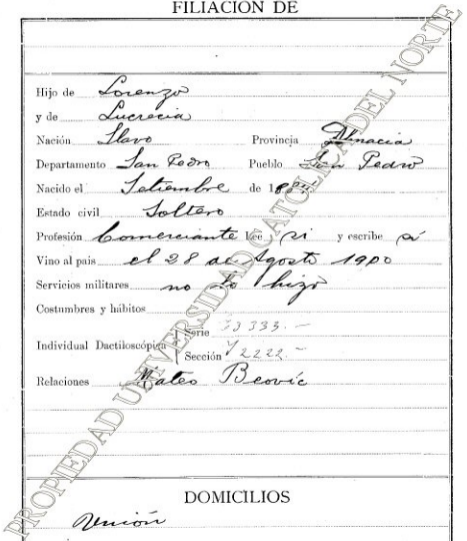 FILIACION DE
Hijo de Lorenzo
y de Lucrecia
Nación Slavo Provincia Dlmacia
Departamento San Pedro Pueblo San Pedro
Nacido el Setiembre de 18
Estado civil Soltero
Profesión Comerciante Lee si y escribe si
Vino al pais el 28 de Agosto 1900
Servicios militares no lo hizo
Costumbres y hábitos
Individual Dactiloscópica Serie 33333.-
Sección V2222.-
Relaciones Mateo Beovic
DOMICILIOS
Unión
PROPIEDAD UNIVERSIDAD CATOLICA DEL NORTE